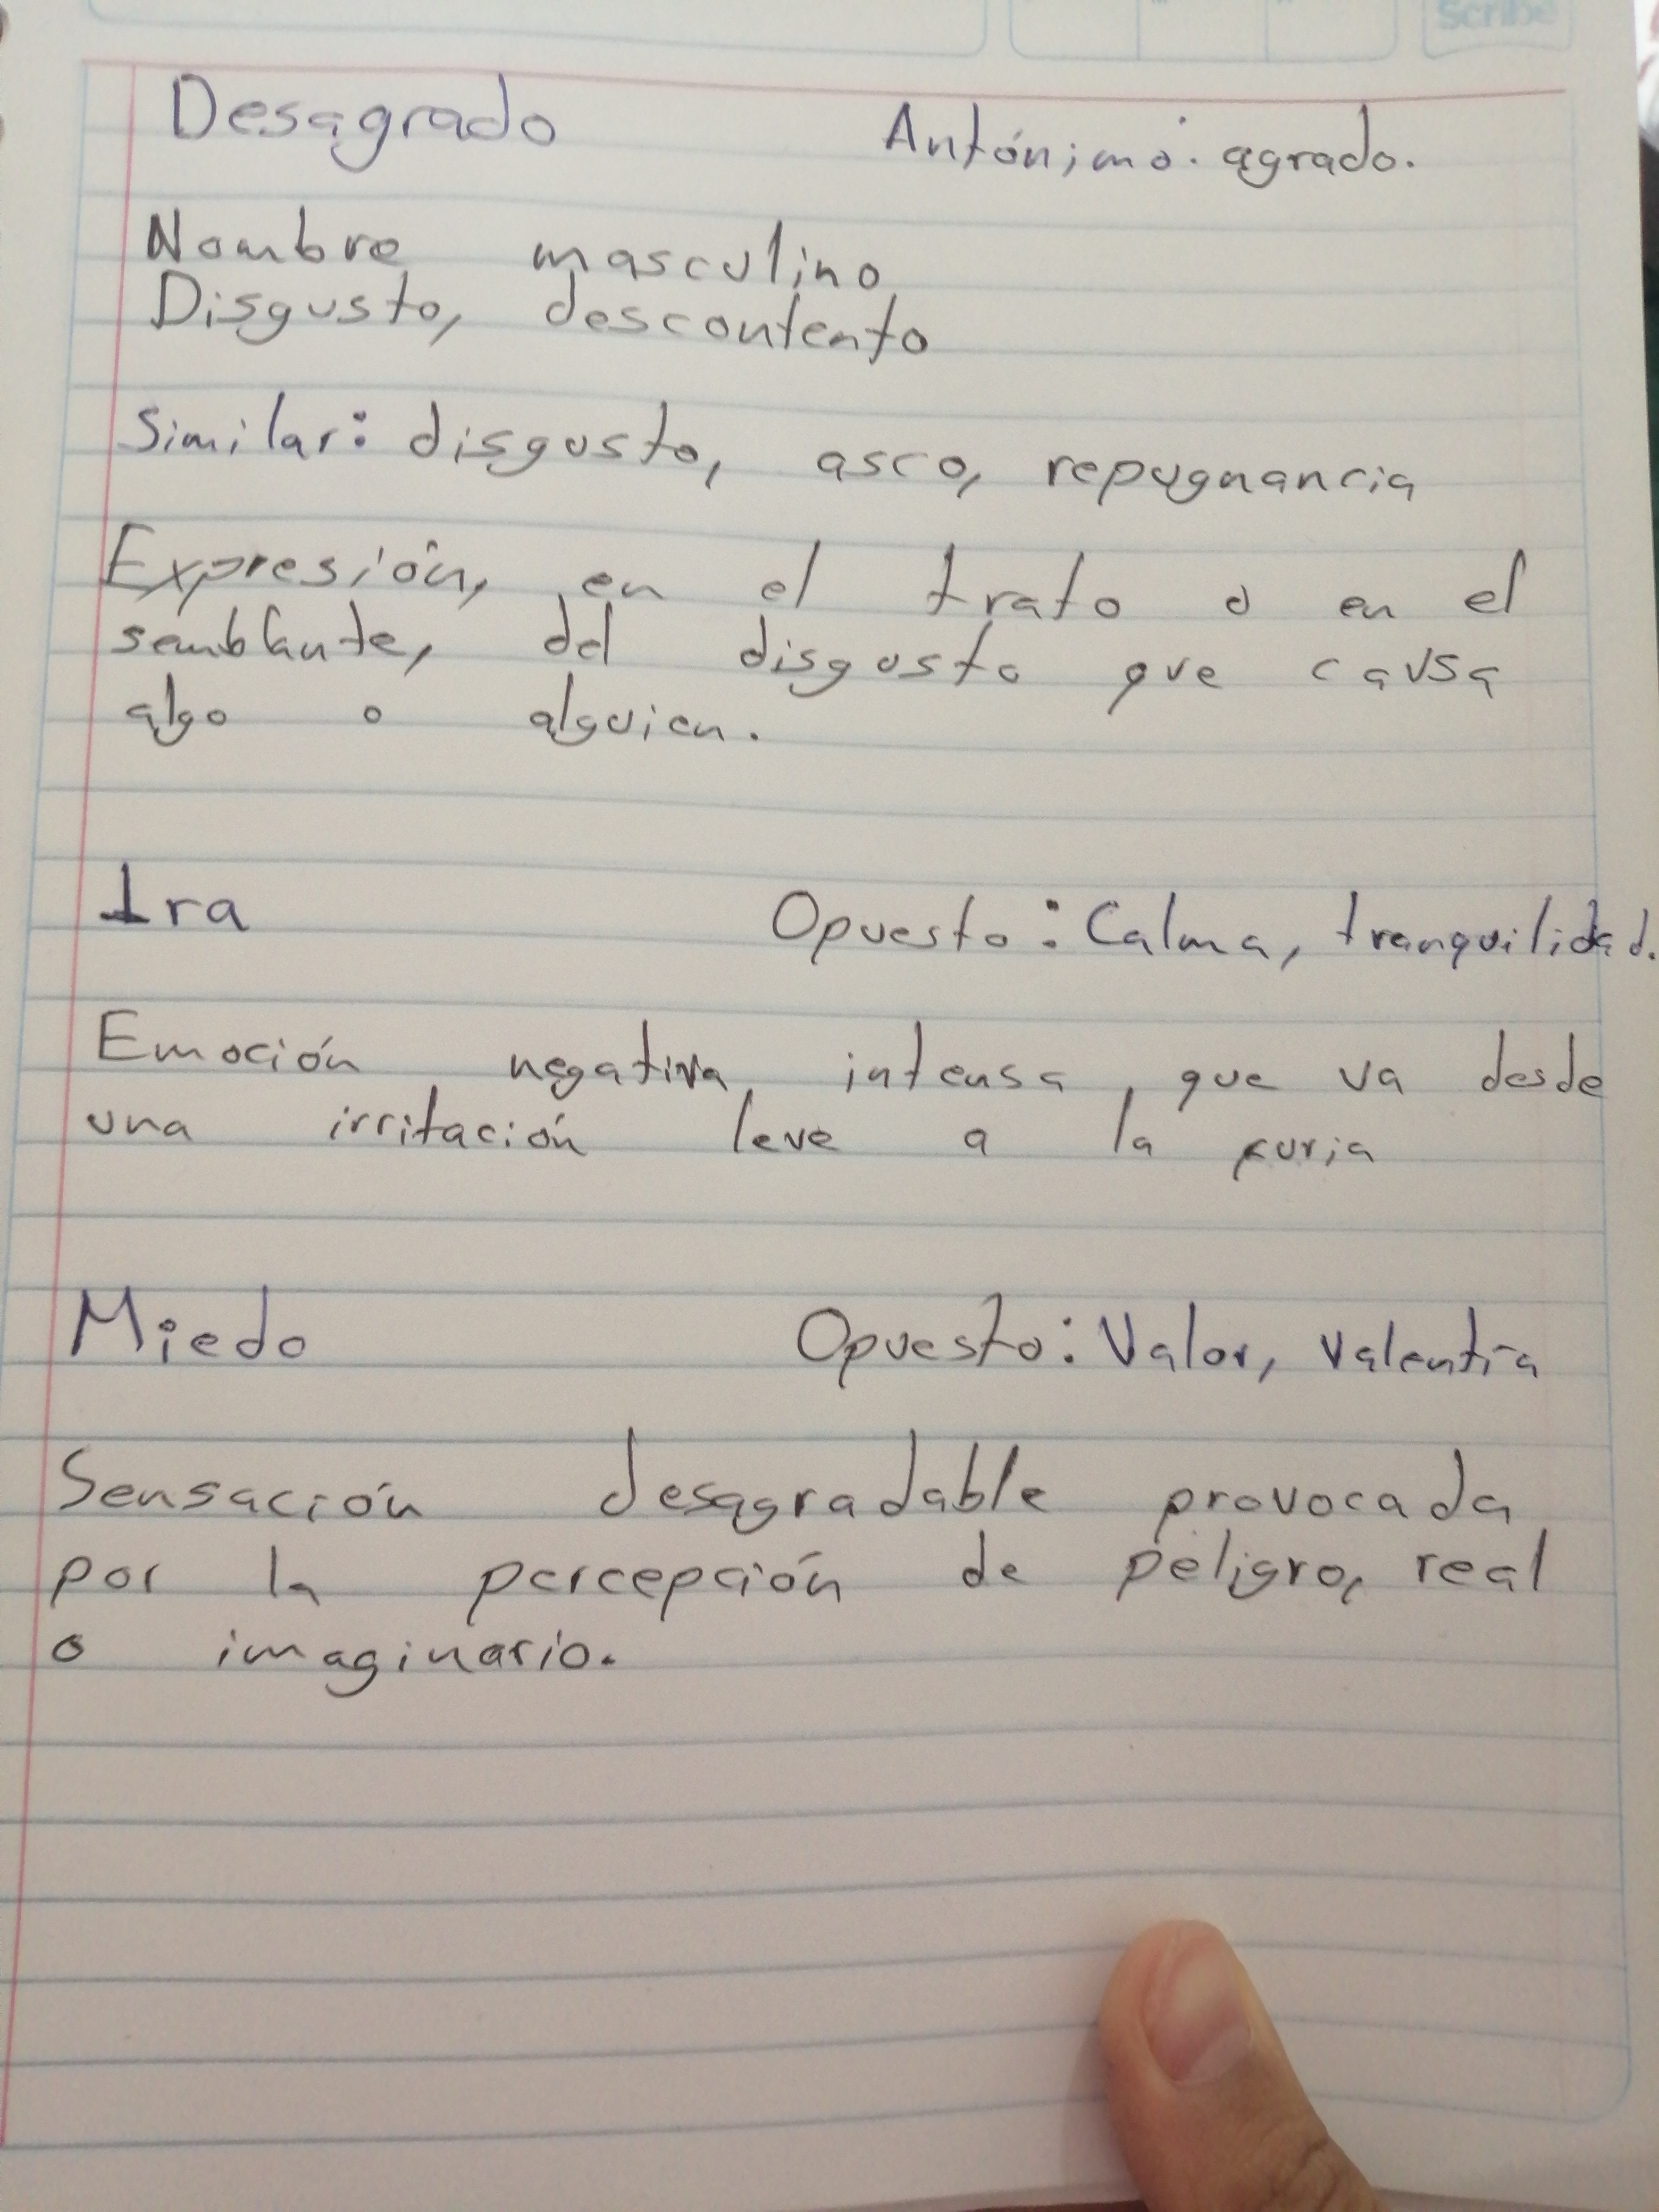 Scribe
Desagrado Antónimo: agrado.
Nombre masculino
Disgusto, descontento
Similar: disgusto, asco, repugnancia
Expresión, en el trato o en el
semblante, del disgusto que causa
algo o alguien.
Ira Opuesto: Calma, tranquilidad.
Emoción negativa intensa, que va desde
una irritación leve a la furia
Miedo Opuesto: Valor, valentía
Sensación desagradable provocada
por la percepción de peligro, real
o imaginario.